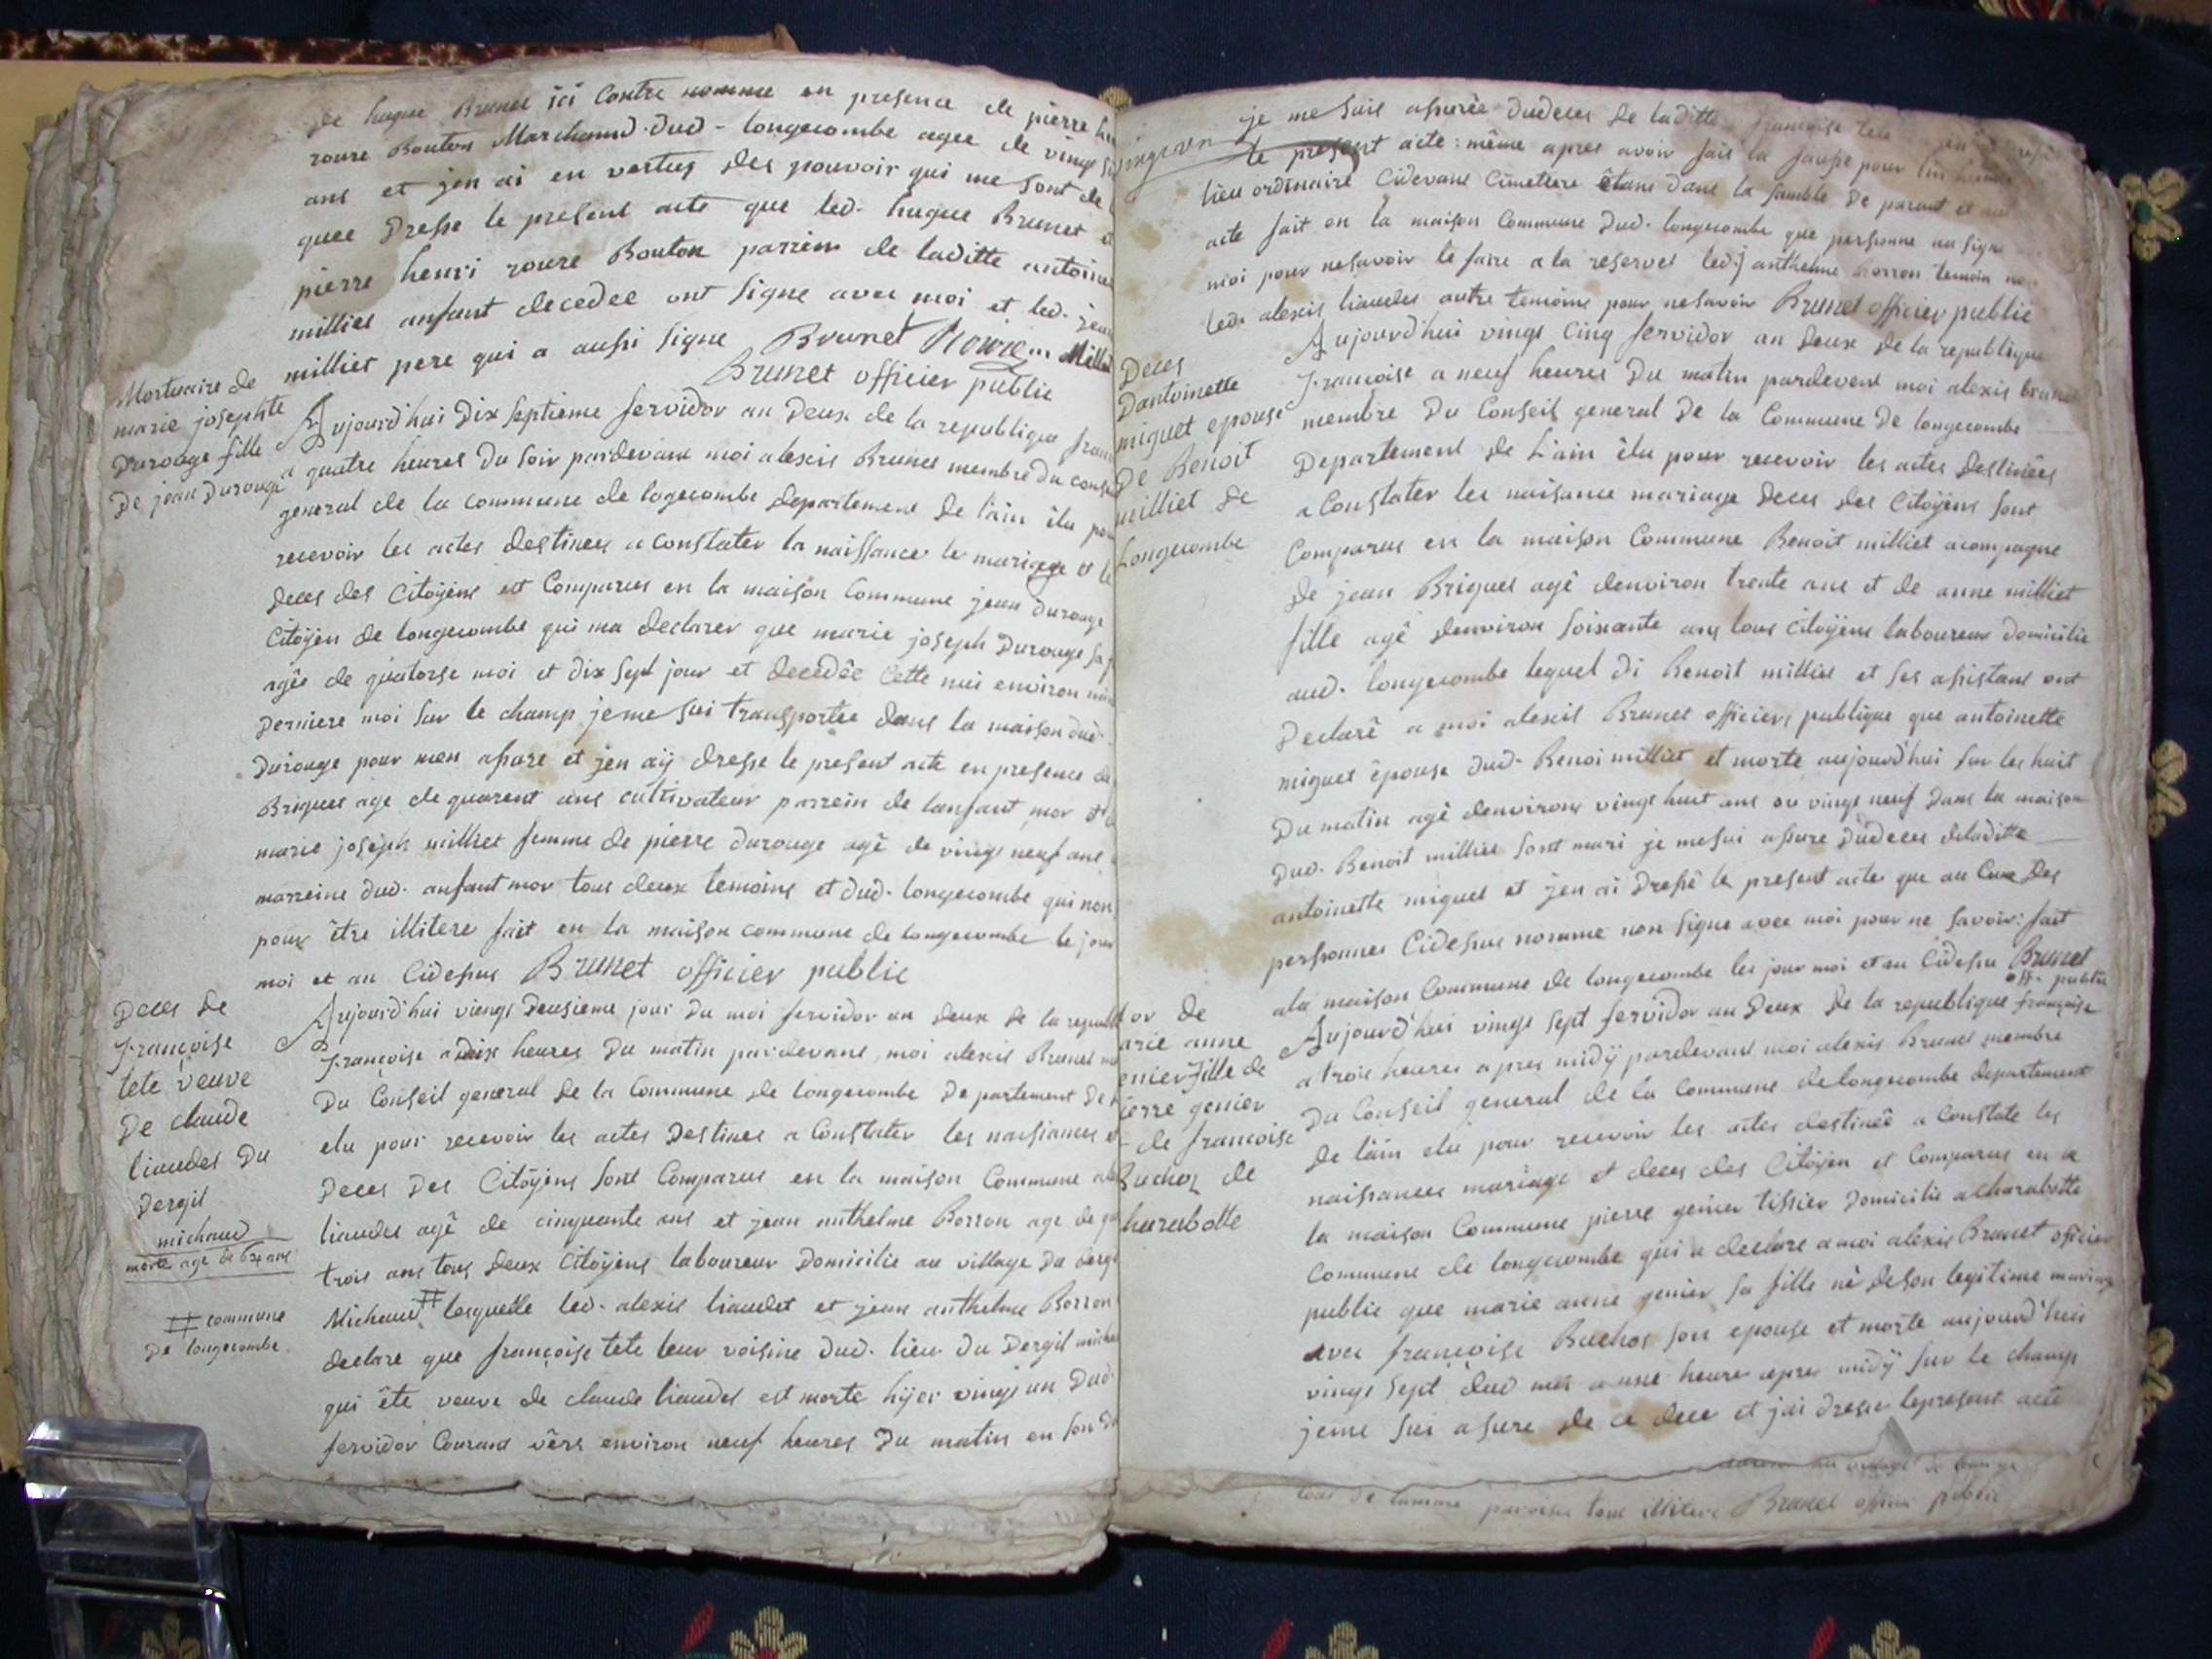 de hugue Brunet ici Contre nomme en presence de pierre
roure Bouton Marchand dud - longecombe agee de vingt
ans et jen ai en vertus des pouvoir qui me sont de
quee Dresse le present acte que led. hugue Brunet et
pierre henri roure Bouton parrien de laditte antoine
milliet anfant decedee ont signe avec moi et led. jean
milliet pere qui a aussi signe Brunet
Brunet officier public
Mortuaire de
marie josephte
Durouge fille
De jean Durouge
Aujourd'hui Dix septieme fervidor an Deux de la republique
a quatre heures du soir pardevant moi alexis Brunet membre du
general de la commune de logecombe departement de l'ain élu
recevoir les actes destinees a constater la naissance le mariage et le
deces des Citoÿens est Comparus en la maison Commune jean durouge
Citoÿen de longecombe qui ma declarer que marie joseph Durouge sa
agée de quatorse moi et dix sept jour et decedée Cette nui environ
Derniere moi sur le champ je me sui transportée dans la maison dud
Durouge pour men assure et jen aÿ dresse le present acte en presence de
Briguet age de quarent ans cultivateur parrein de lanfant mor et
marie joseph milliet femme de pierre durouge agé de vingt neuf ans
marreine dud. anfant mor tous deux temoins et dud. longecombe qui non
pour être illitere fait en la maison commune de longecombe le jour
moi et an Cidessus Brunet officier public
Deces de
françoise
tete veuve
De claude
liaudet Du
Dergil
michaud
morte age de ans
# commune
De longecombe
Aujourd'hui viengt Deusieme jour Du moi fervidor an deux de la
françoise a Dix heures Du matin pardevant moi alexis Brunet
Du Conseil general de la Commune de longecombe Departement De
elu pour recevoir les actes Destinee a Constater les naissances et
Deces Des Citoÿens sont Comparus en la maison Commune
liaudet agé de cinquante ans et jean anthelme Borron age de
trois ans tous deux Citoÿens laboureur Domicilie au village Du
Michaud # lesquelle led. alexis liaudet et jean anthelme Borron
declare que françoise tete leur voisine dud. lieu Du Dergil
qui éte veuve de claude liaudet est morte hijer vingt un Dud
fervidor Courant vêrs environ neuf heures Du matin en son
je me suis assurée dudeces de laditte françoise tete
le present acte: même apres avoir fait la fausse pour
lieu ordinaire Cidevant Cimetiere étant dans la samble De parant et
acte fait en la maison Commune Dud. longecombe que personne na signe
moi pour nesavoir le faire a la reserves led j anthelme Borron temoin
led. alexis liaudet autre temoins pour nesavoir Brunet officier public
Deces
Dantoinette
miguet epouse
De Benoit
milliet de
Longecombe
Aujourd'hui vingt Cinq fervidor an deux de la republique
françoise a neuf heures Du matin pardevent moi alexis brunet
membre Du Conseil general De la Commune De longecombe
Departement de L'ain élu pour recevoir les actes destinées
a Constater les naisance mariage deces des Citoÿens sont
Comparus en la maison Commune Benoit milliet acompagne
De jean Briguet agé denviron trente ans et de anne milliet
fille agé denviron soixante ans tous Citoÿens laboureur domicilie
aud. longecombe lequel di Benoit milliet et ses assistant ont
Declaré a moi alexis Brunet officiers publique que antoinette
miguet épouse dud. Benoi milliet et morte aujourd'hui sur les huit
Du matin agé denvirons vingt huit ans ou vingt neuf Dans la maison
Dud. Benoit milliet sont mari je mesui assure dudeces deladitte
antoinette miguet et jen ai Dressé le present actes que au Cune Des
personnes Cidessus nomme non signe avec moi pour ne savoir: fait
ala maison Commune de longecombe les jour moi et an Cidessu Brunet
off. public
or de
arie anne
enier fille de
ierre genier
de francoise
Buchoz de
harabotte
Aujourd'hui vingt sept fervidor an Deux de la republique françoise
a trois heures apres midÿ pardevant moi alexis Brunet membre
Du Conseil general de la Commune delongecombe departement
De l'ain elu pour recevoir les actes destinéé a Constate les
naissances mariage et deces des Citoÿen et Comparus en la
la maison Commune pierre genier tissier Domicilie acharabotte
Commune de longecombe qui a declare a moi alexis Brunet oficier
public que marie anne genier sa fille né deson legitime mariage
avec françoise Buchos son epouse et morte aujourd'hui
vingt sept dud moi a une heure apres midÿ sur le champ
jeme sui asure de ce dece et jai dresse lepresent acte
paroisse tous illitere Brunet officier public